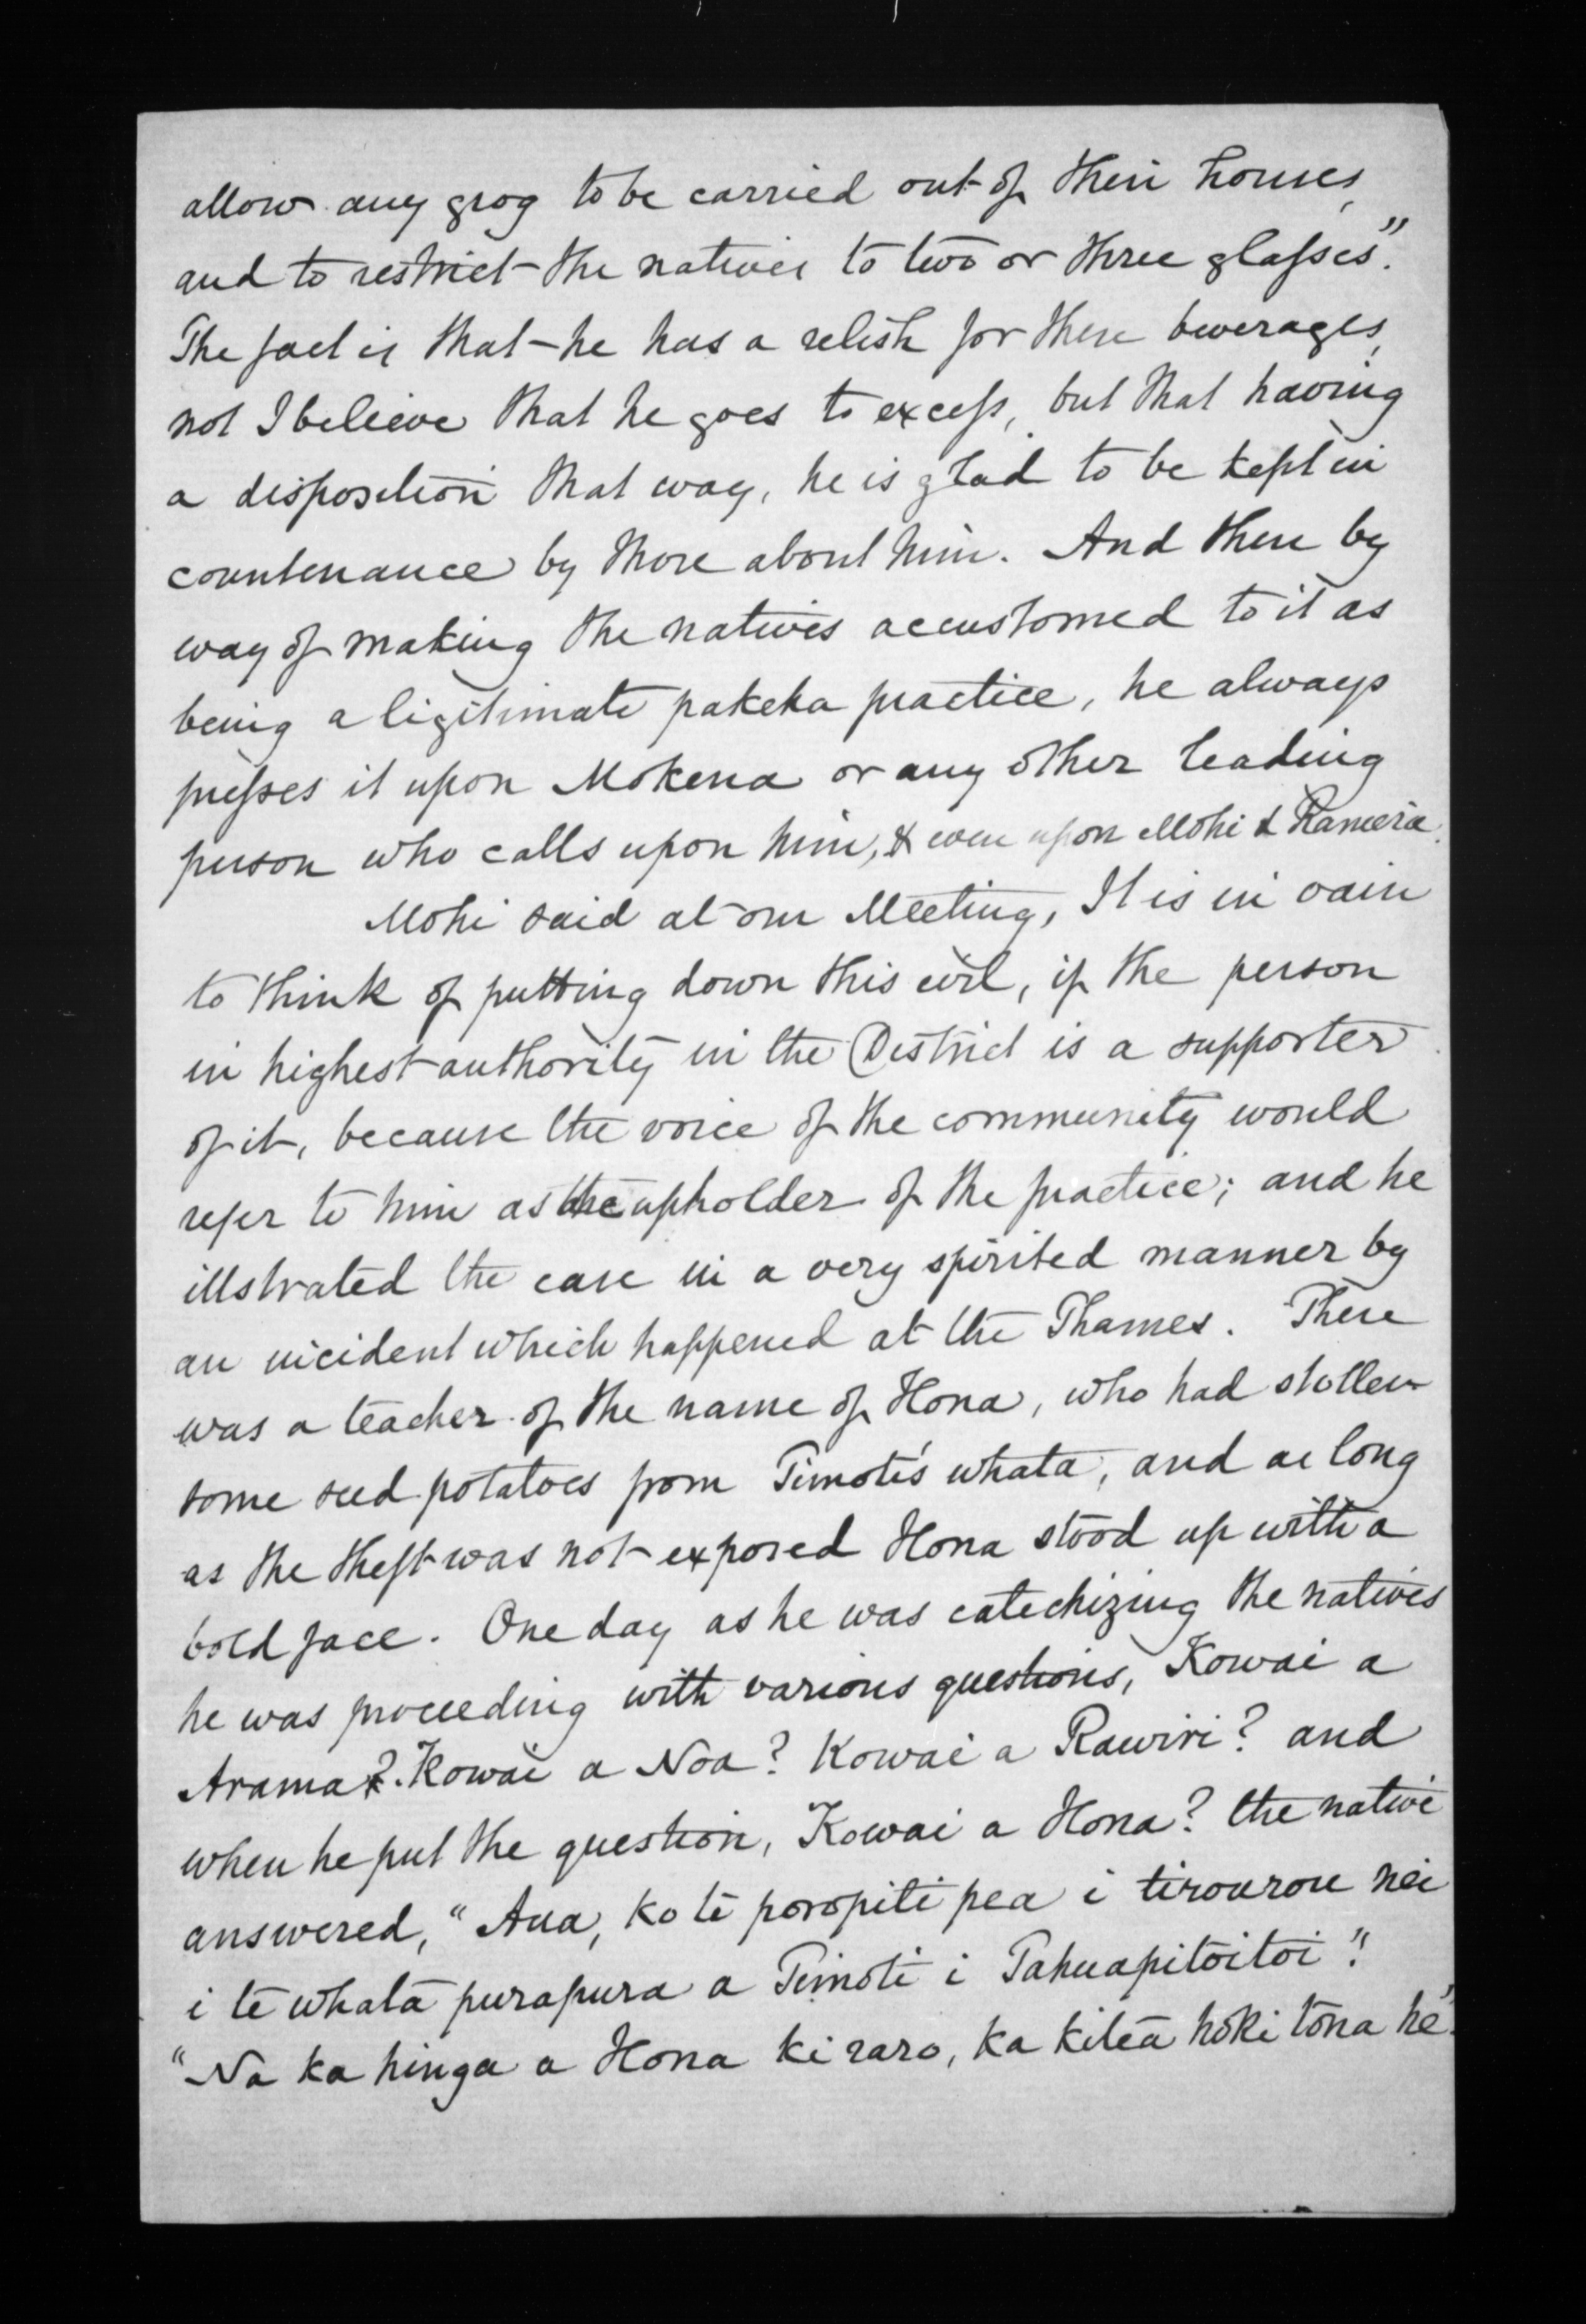 allow any grog to be carried out of their houses,
and to restrict the natives to two or three glasses".
The fact is that he has a relish for these beverages,
not I believe that he goes to excess, but that having
a disposition that way, he is glad to be kept in
countenance by those about him. And then by
way of making the natives accustomed to it as
being a ligitimate pakeha practice, he always
presses it upon Mokena or any other leading
person who calls upon him, & even upon Mohi & Raniera.
Mohi said at our Meeting, It is in vain
to think of putting down this evil, if the person
in highest authority in the District is a supporter
of it, because the voice of the community would
refer to him as the upholder of the practice; and he
illstrated the case in a very spirited manner by
an incident which happened at the Thames. There
was a teacher of the name of Hona, who had stollen
some seed potatoes from Timoti's whata, and as long
as the theft was not exposed Hona stood up with a
bold face. One day as he was catechizing the natives
he was proceeding with various questions, Kowai a
Arama? Kowai a Noa? Kowai a Rawiri? and
when he put the question, Kowai a Hona? the native
answered, "Aua, ko te poropiti pea i tirourou nei
i te whata purapura a Timoti i Tahuapitoitoi".
"Na ka hinga a Hona ki raro, ka kitea hoki tona he".